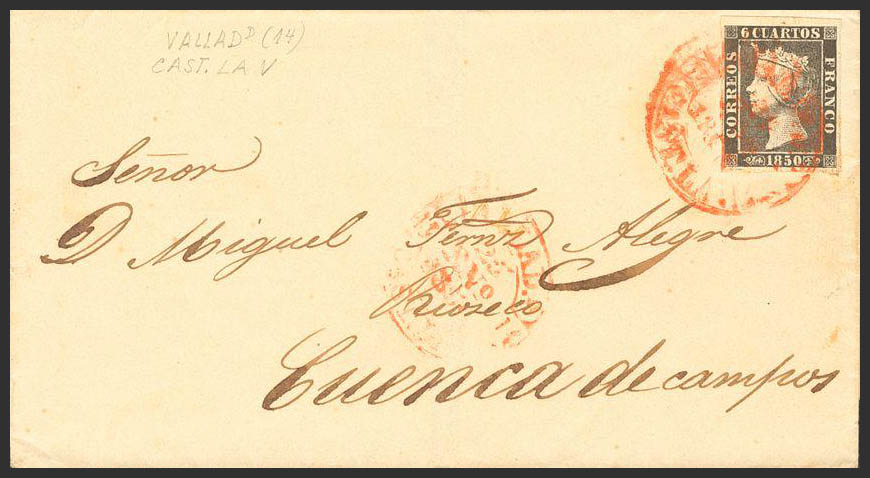 VALLADD (14)
CAST. LA V
6 CUARTOS
CORREOS
FRANCO
1850
Señor
D Miguel Fernz Alegre
Rioseco
Cuenca de campos